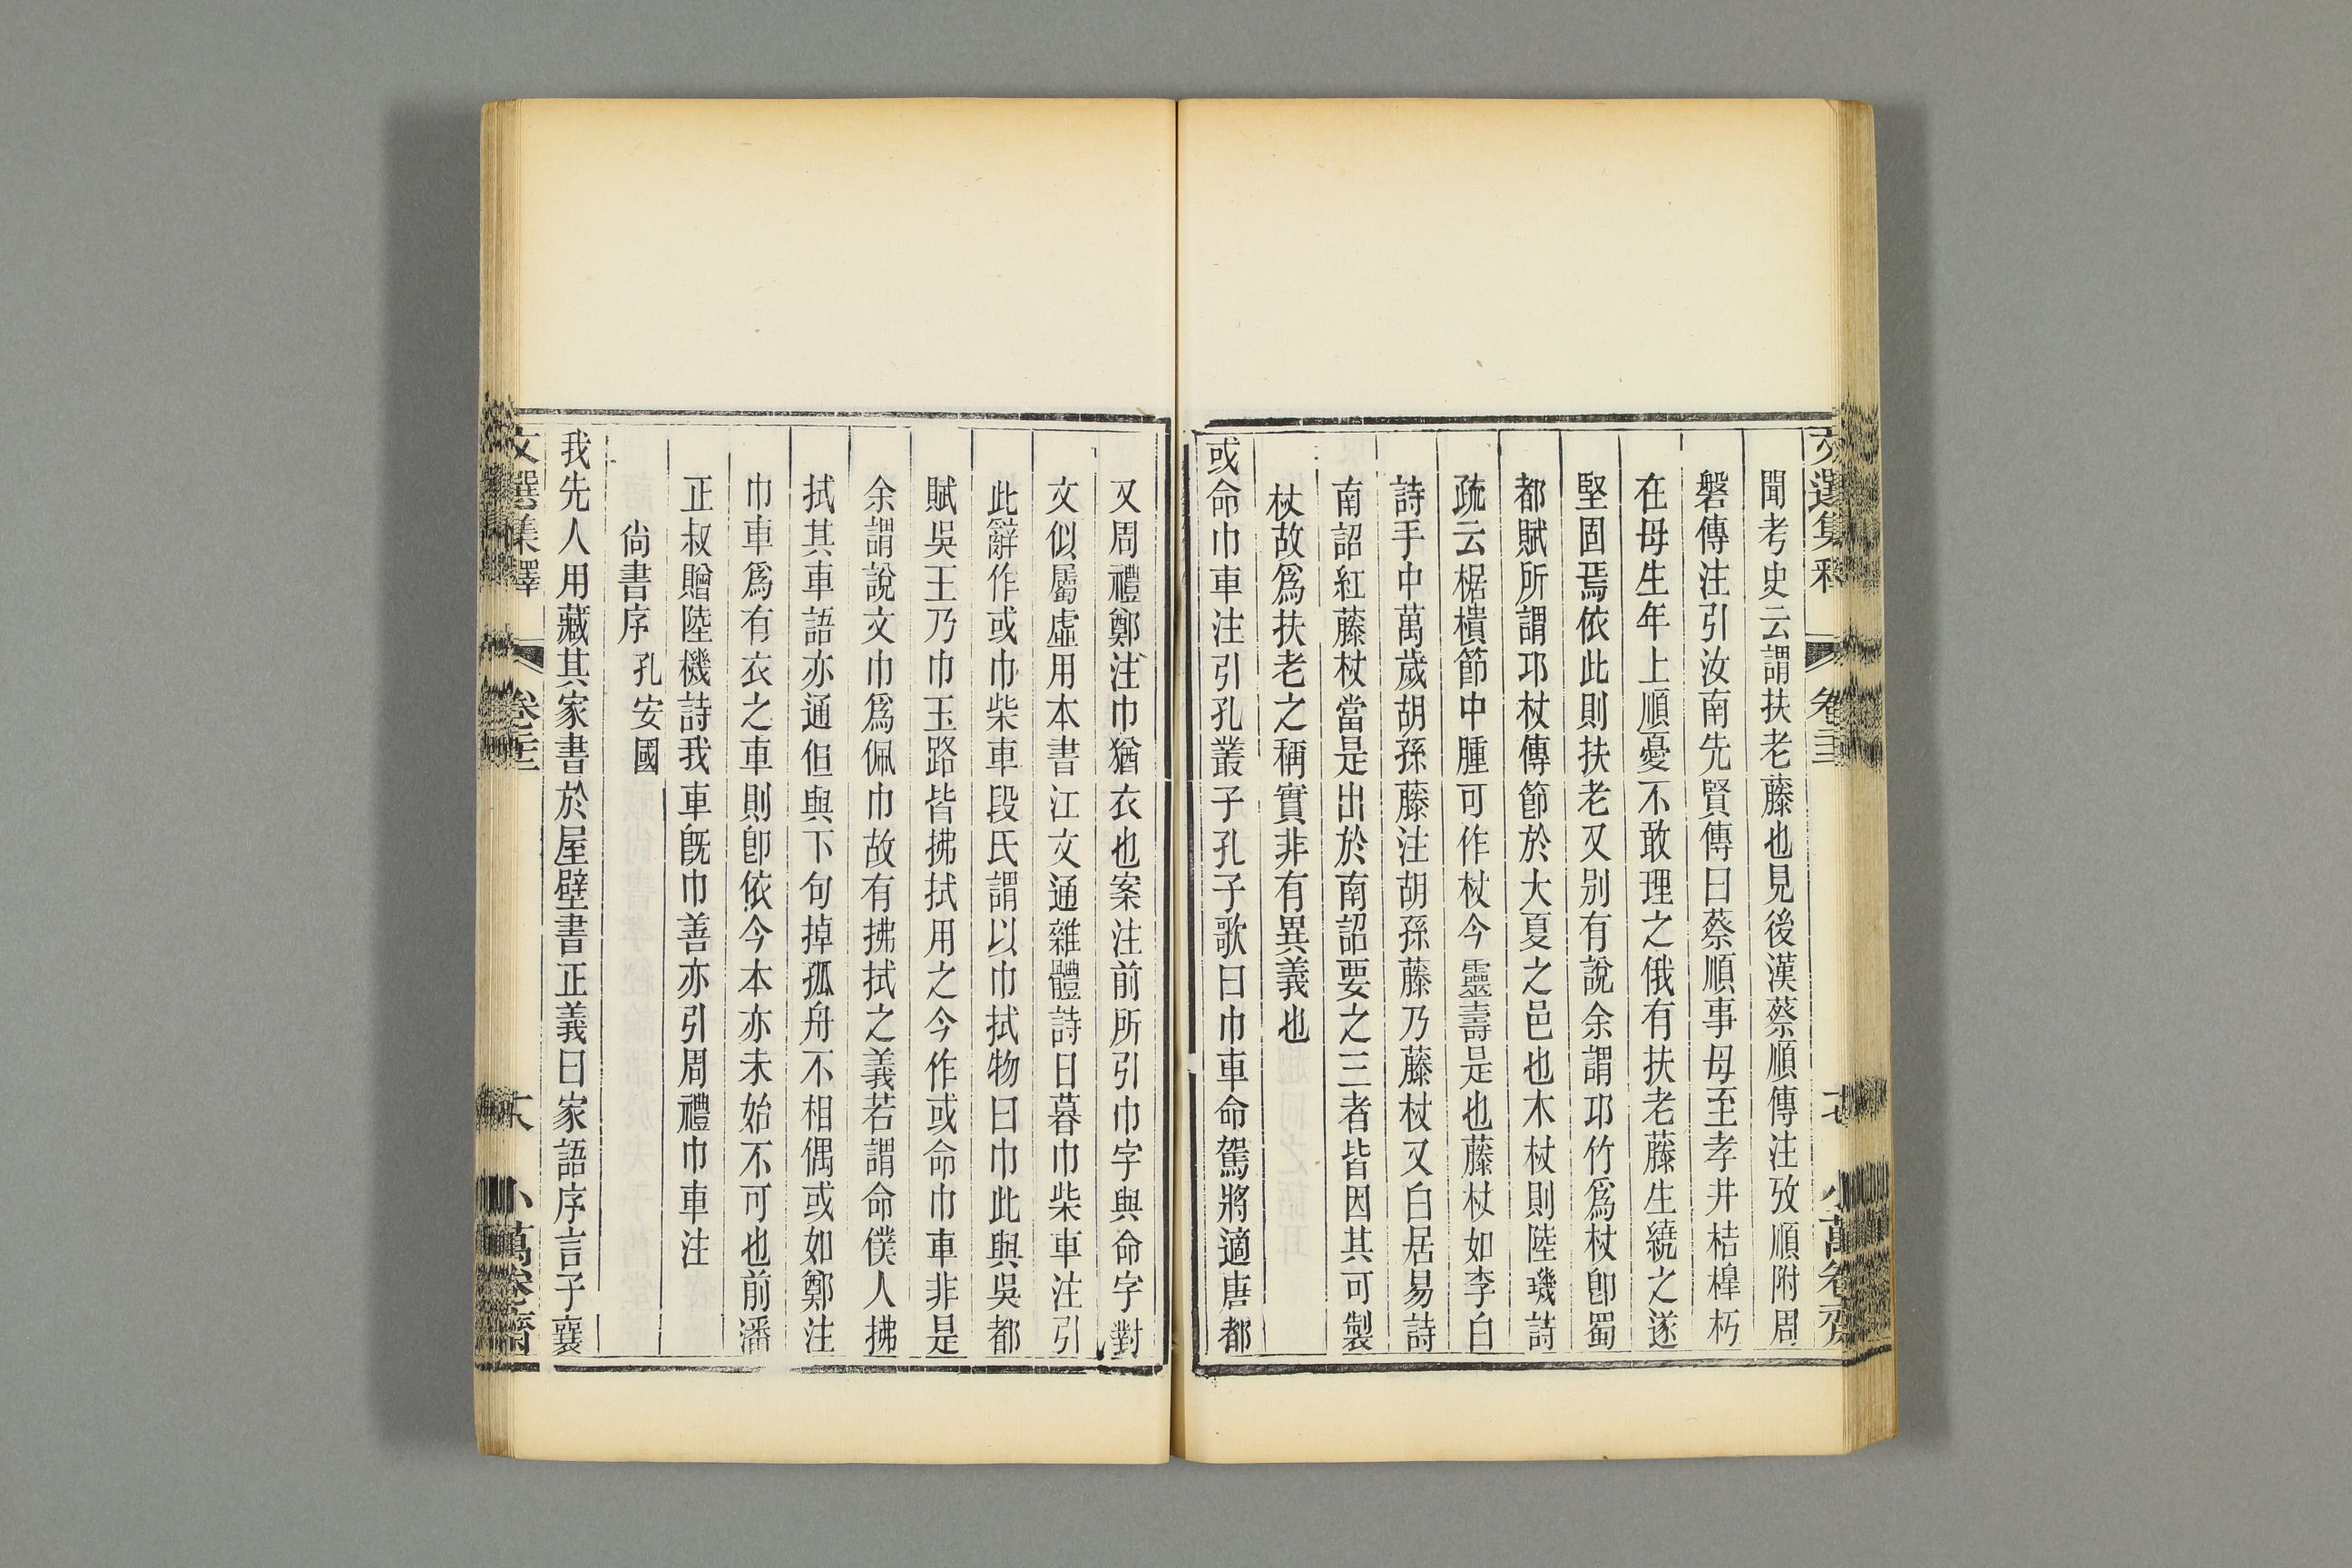 聞考史云謂扶老藤也見後漢蔡順傳注攷順附周
磐傳注引汝南先賢傳曰蔡順事母至孝井桔槹朽
在母生年上順憂不敢理之俄有扶老藤生繞之遂
堅固焉依此則扶老又别有說余謂邛竹爲杖卽蜀
都賦所謂邛杖傳節於大夏之邑也木杖則陸璣詩
疏云椐樻節中腫可作杖今靈壽是也藤杖如李白
詩手中萬歲胡孫藤注胡孫藤乃藤杖又白居易詩
南詔紅藤杖當是出於南詔要之三者皆因其可製
杖故爲扶老之稱實非有異義也
或命巾車注引孔叢子孔子歌曰巾車命駕將適唐都
又周禮鄭注巾猶衣也案注前所引巾字與命字對
文似屬虛用本書江文通雜體詩日暮巾柴車注引
此辭作或巾柴車段氏謂以巾拭物曰巾此與吳都
賦吳王乃巾玉路皆拂拭用之今作或命巾車非是
余謂說文巾爲佩巾故有拂拭之義若謂命僕人拂
拭其車語亦通但與下句掉孤舟不相偶或如鄭注
巾車爲有衣之車則卽依今本亦未始不可也前潘
正叔贈陸機詩我車旣巾善亦引周禮巾車注
尙書序 孔安國
我先人用藏其家書於屋壁書正義曰家語序言子襄
文選集釋 卷 小萬卷齋